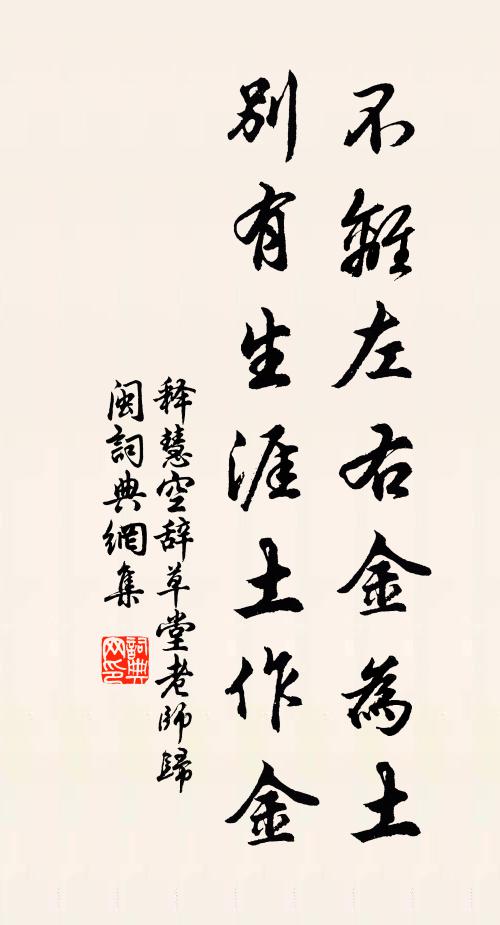 不離左右金為土
別有生涯土作金
释慧空辞草堂老師歸
閩詞典網集
詞典網印